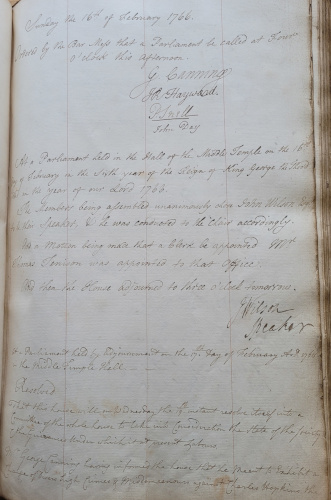 Sunday the 16th of February 1766.
Ordered by the Bar Mess that a Parliament be called at Four
o'Clock this afternoon.
G Canning
Haywood
John Day
At a Parliament held in the Hall of the Middle Temple on the 16th
of February in the Sixth year of the Reign of King George the Third
in the year of our Lord 1766.
The Members being assembled unanimously chose John Wilson Esqr
Speaker, & he was conducted to the Chair accordingly.
a Motion being made that a Clerk be appointed Mr
was appointed to that Office.
then the House adjourned to three o'Clock tomorrow.
J Wilson
Speaker
Parliament held by Adjournment on the 17th Day of February
the Middle Temple Hall
Resolved
That this house will on Wednesday the instant resolve itself into a
Committee of the whole house to take into Consideration the State of the
at
George Canning informed the house that he meant to exhibit
Crimes & Misdemeanours against Charles Hopkins